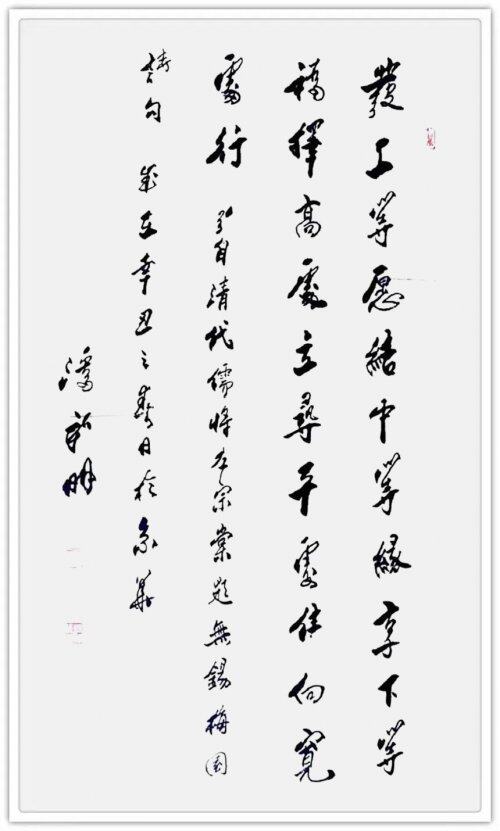 發上等愿結中等緣享下等
福擇高處立尋平處住向寬
處行 引自清代儒將左宗棠題無錫梅園
詩句 歲在辛丑之春日於京華
潘新明